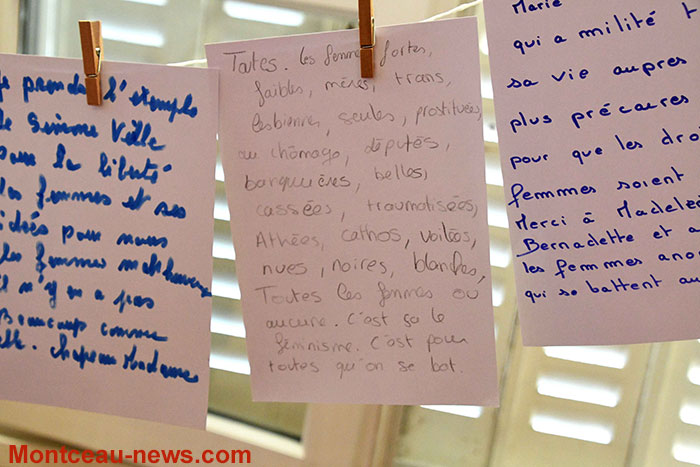 Je prends l'exemple
de Simone Veille
pour la liberté
des femmes et ses
idées pour nous
les femmes malheureus
il n'y en a pas
Beaucoup comme
elle. chapeau Madame
Toutes. les femmes fortes,
faibles, mères, trans,
lesbiennes, seules, prostituées,
au chômage, députés,
banquières, belles,
cassées, traumatisées,
Athées, cathos, voilées,
nues, noires, blanches,
Toutes les femmes ou
aucune. C'est ça le
féminisme. C'est pour
toutes qu'on se bat.
Marie
qui a milité t
sa vie aupres
plus précaires
pour que les dro
femmes soient
Merci à Madelei
Bernadette et a
les femmes ano
qui se battent au
Montceau-news.com